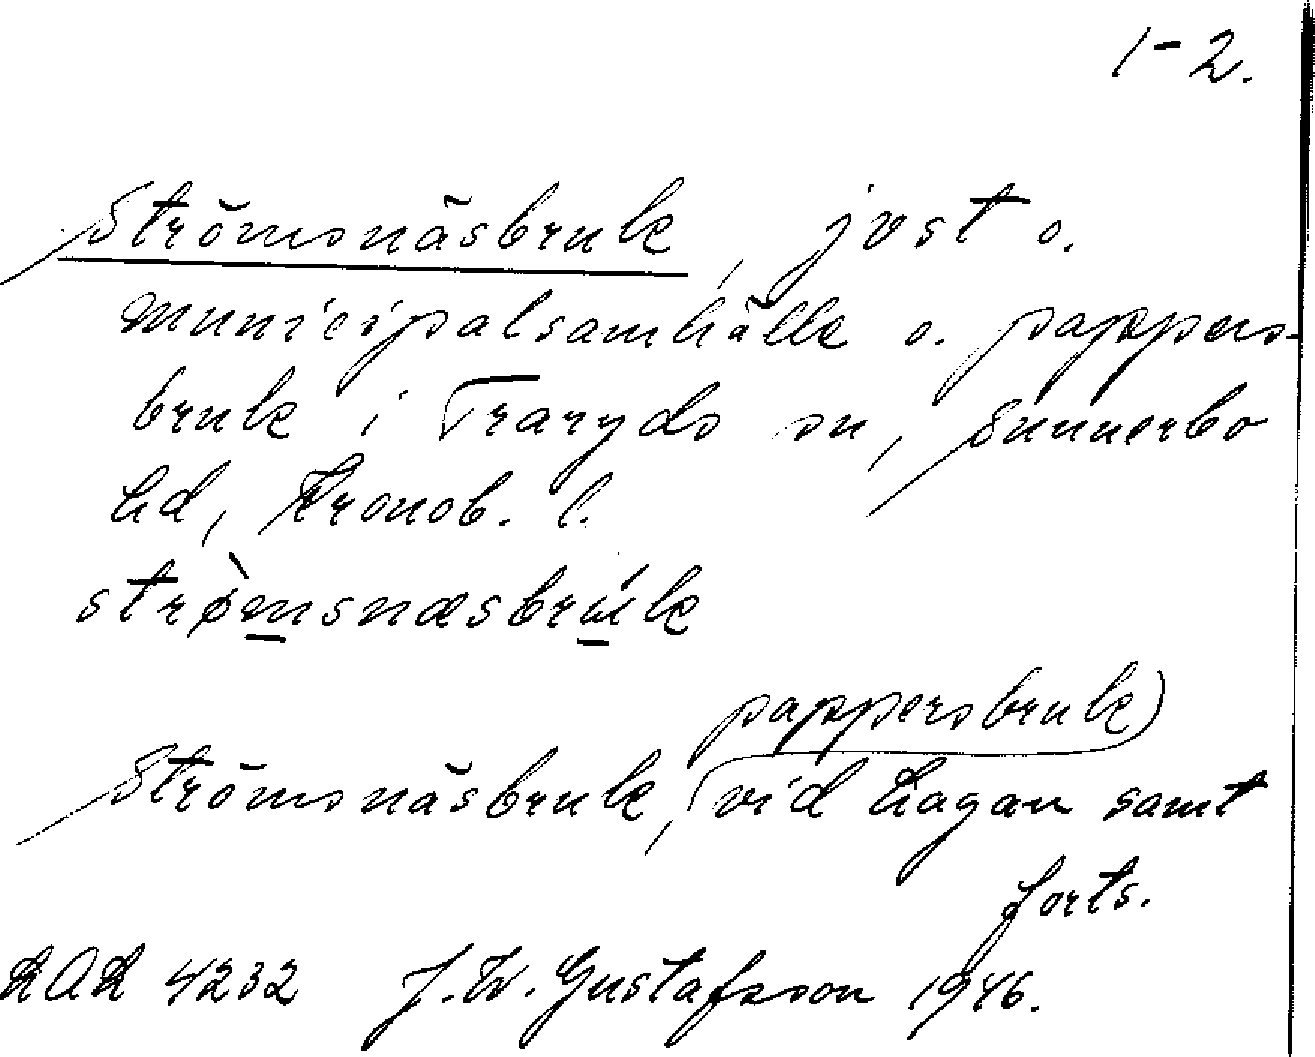 1-2.
Strömsnäsbruk, jvst o.
municipalsamhälle o. pappers-
bruk i Traryds sn, Sunnerbo
hd, Kronob. l.
strø̀msnæsbrúk
pappersbruk
Strömsnäsbruk, vid Lagan samt
forts.
4232 J.W. Gustafsson 1946.